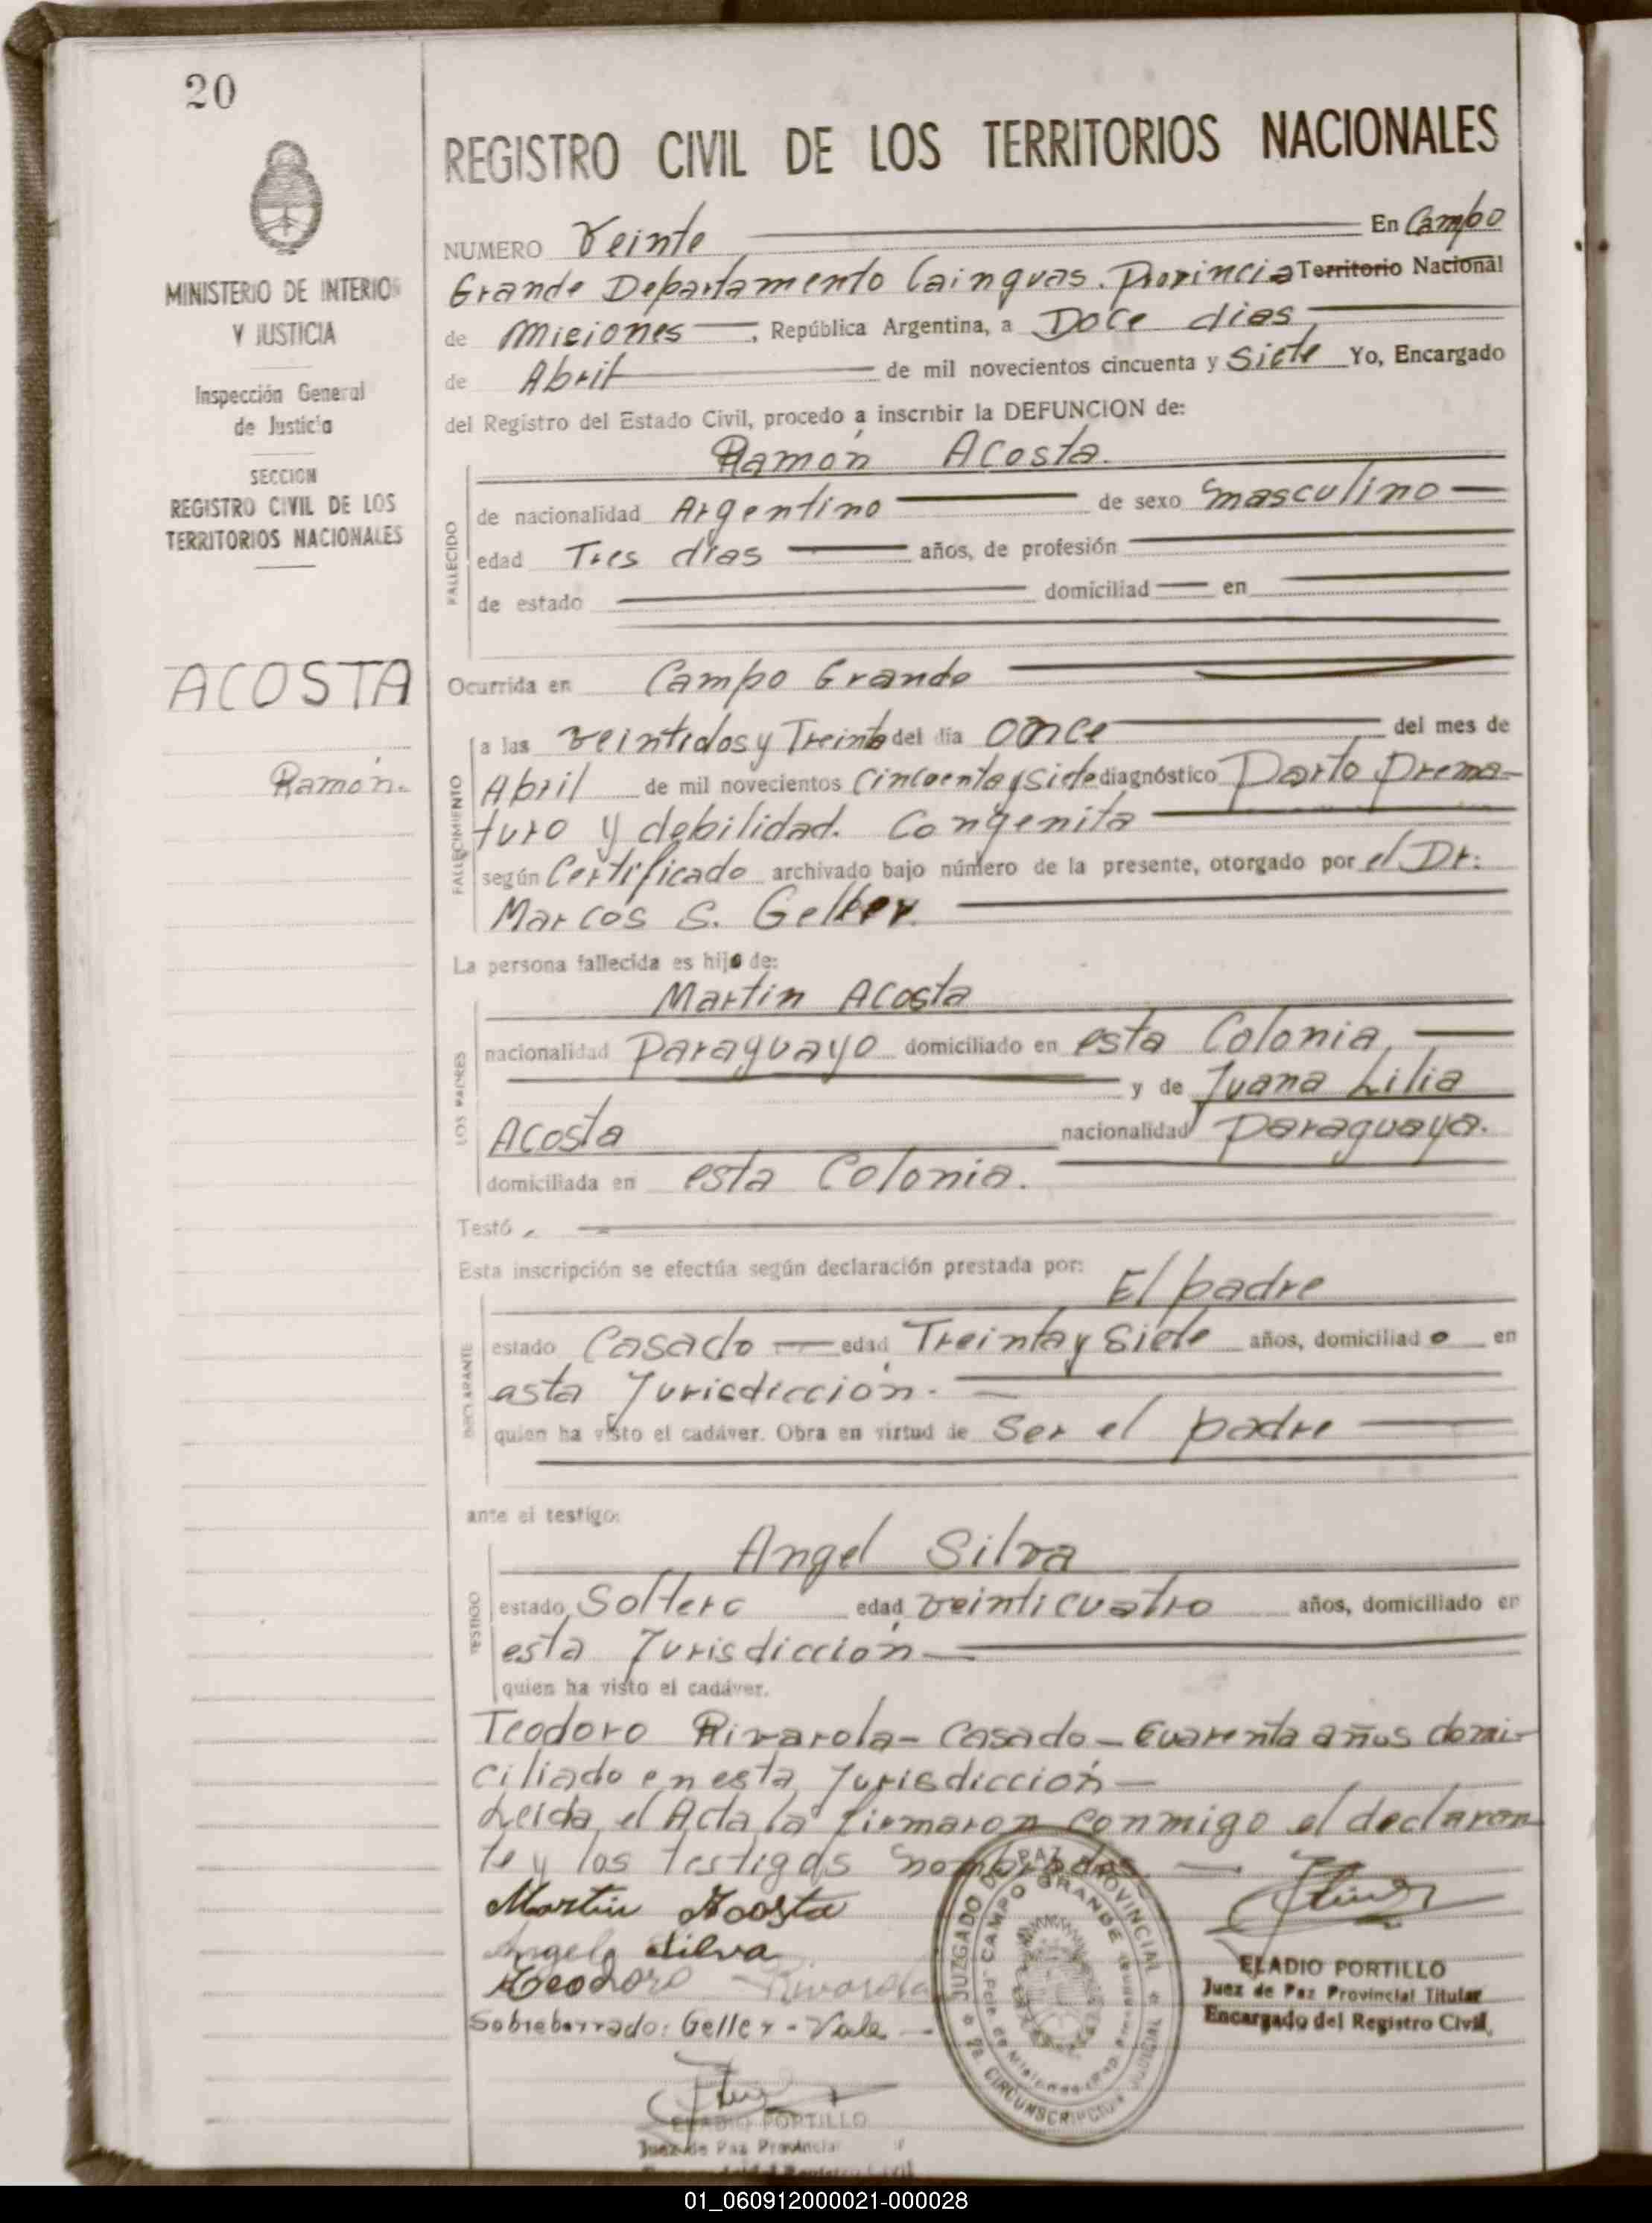 20
MINISTERIO DE INTERIOR
Y JUSTICIA
Inspección General
de Justicia
SECCION
REGISTRO CIVIL DE LOS
TERRITORIOS NACIONALES
ACOSTA
Ramón.
REGISTRO CIVIL DE LOS TERRITORIOS NACIONALES
NUMERO Veinte En Campo
Grande Departamento Cainguas. Provincia Territorio Nacional
de Misiones, República Argentina, a Doce dias
de Abril de mil novecientos cincuenta y Siete Yo, Encargado
del Registro del Estado Civil, procedo a inscribir la DEFUNCION de:
Ramón Acosta.
FALLECIDO
de nacionalidad Argentino de sexo masculino
edad Tres dias años, de profesión
de estado domiciliad en
Ocurrida en Campo Grande
FALLECIMIENTO
a las veintidos y Treinta del día once del mes de
Abril de mil novecientos Cincuenta y Siete diagnóstico Parto Prema-
turo y debilidad. Congenita
según Certificado archivado bajo número de la presente, otorgado por el Dr:
Marcos S. Geller.
La persona fallecida es hijo de:
Martin Acosta
LOS PADRES
nacionalidad Paraguayo domiciliado en esta Colonia,
y de Juana Lilia
Acosta nacionalidad Paraguaya.
domiciliada en esta Colonia.
Testó
Esta inscripción se efectúa según declaración prestada por:
El padre
DECLARANTE
estado Casado edad Treinta y Siete años, domiciliado en
asta Jurisdicción.
quien ha visto el cadáver. Obra en virtud de Ser el padre
ante el testigo:
Angel Silva
TESTIGO
estado Soltero edad veinticuatro años, domiciliado en
esta Jurisdicción
quien ha visto el cadáver.
Teodoro Rivarola - Casado - Cuarenta años domi-
ciliado en esta Jurisdicción
Leida el Acta la firmaron conmigo el declaran
te y los testigos nombrados.
Martin Acosta
Angel Silva
Teodoro Rivarola
Sobreborrado: Geller - Vale
JUZGADO DE PAZ PROVINCIAL
CAMPO GRANDE
CIRCUNSCRIPCION JUDICIAL
ELADIO PORTILLO
Juez de Paz Provincial Titular
Encargado del Registro Civil
ELADIO PORTILLO
Juez de Paz Provincial
01_060912000021-000028